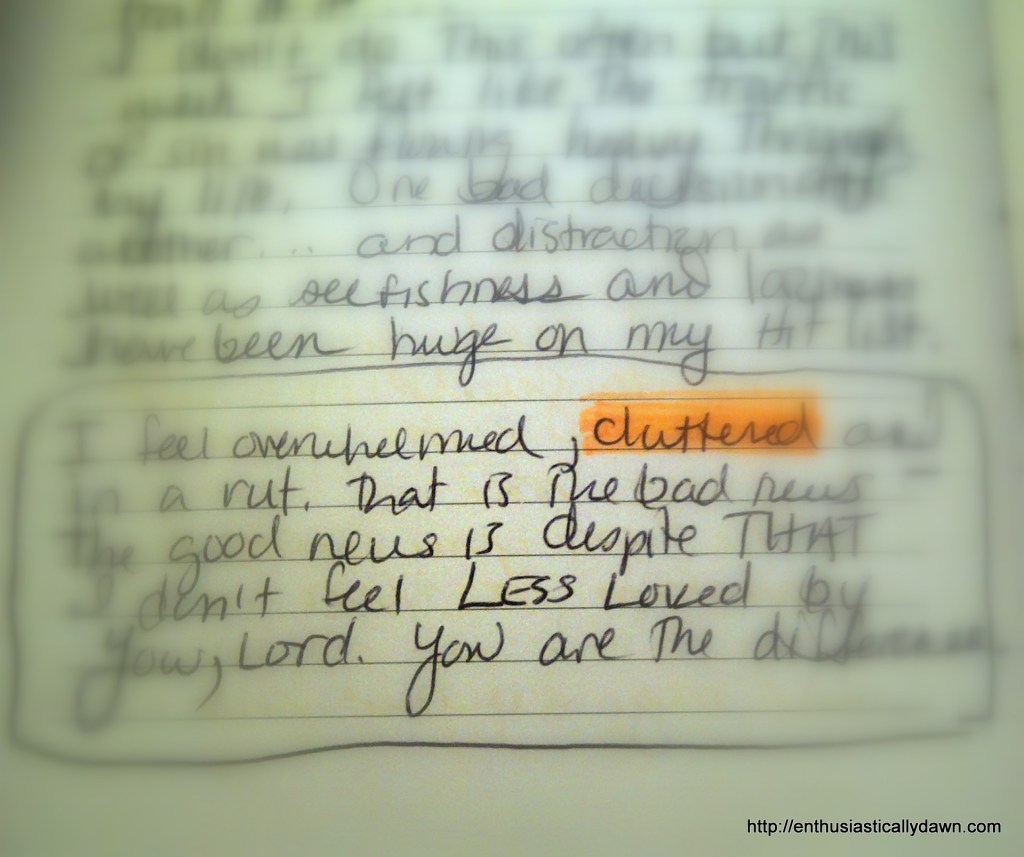 I don't do This often but This
week I felt like The traffic
of sin was heavy Through
my life. One bad
and distraction as
well as selfishness and
have been huge on my Hit list.
I feel overwhelmed, cluttered and
in a rut. That is The bad news
The good news is despite THAT
I don't feel LESS Loved by
You, Lord. You are The difference
http://enthusiasticallydawn.com